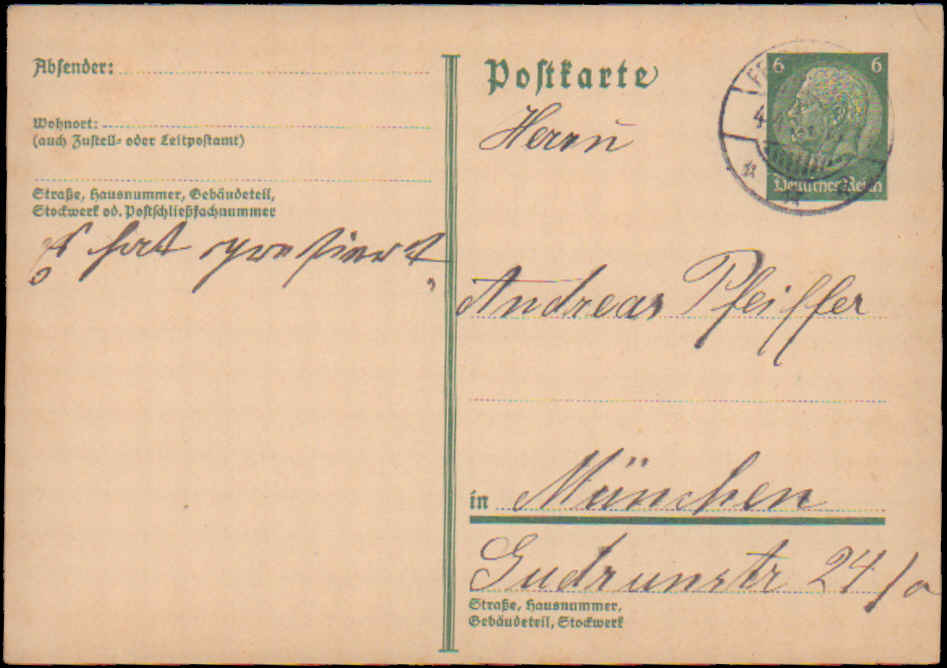 Absender:
Wohnort:
(auch Zustell- oder Leitpostamt)
Straße, Hausnummer, Gebäudeteil,
Stockwerk od. Postschließfachnummer
hat pressiert
Postkarte
6 6
Deutsches Reich
Herrn
Andreas Pfeiffer
in München
Gudrunstr 24/a
Straße, Hausnummer,
Gebäudeteil, Stockwerk